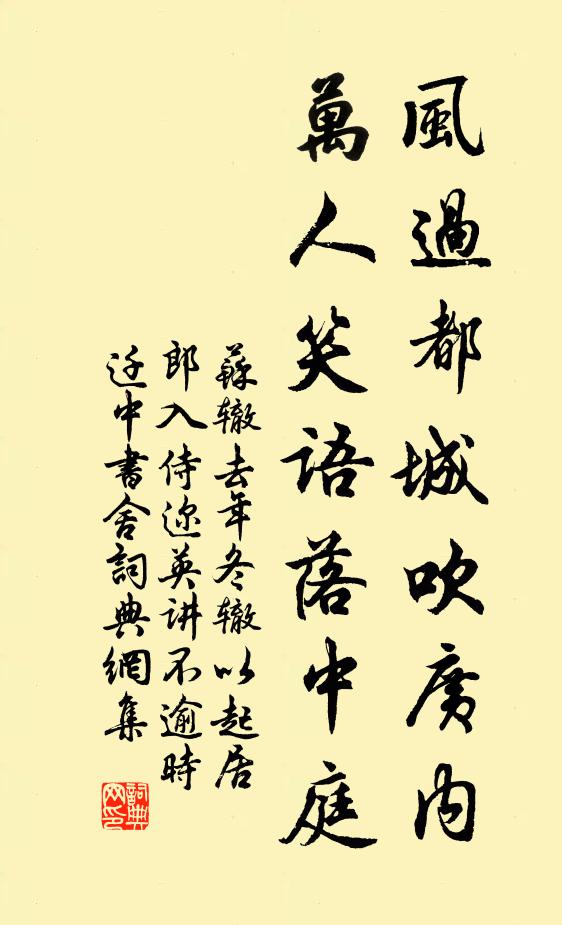 風過都城吹廣內
萬人笑語落中庭
蘇辙去年冬辙以起居
郎入侍迩英讲不逾時
迁中書舍詞典網集
詞典网印